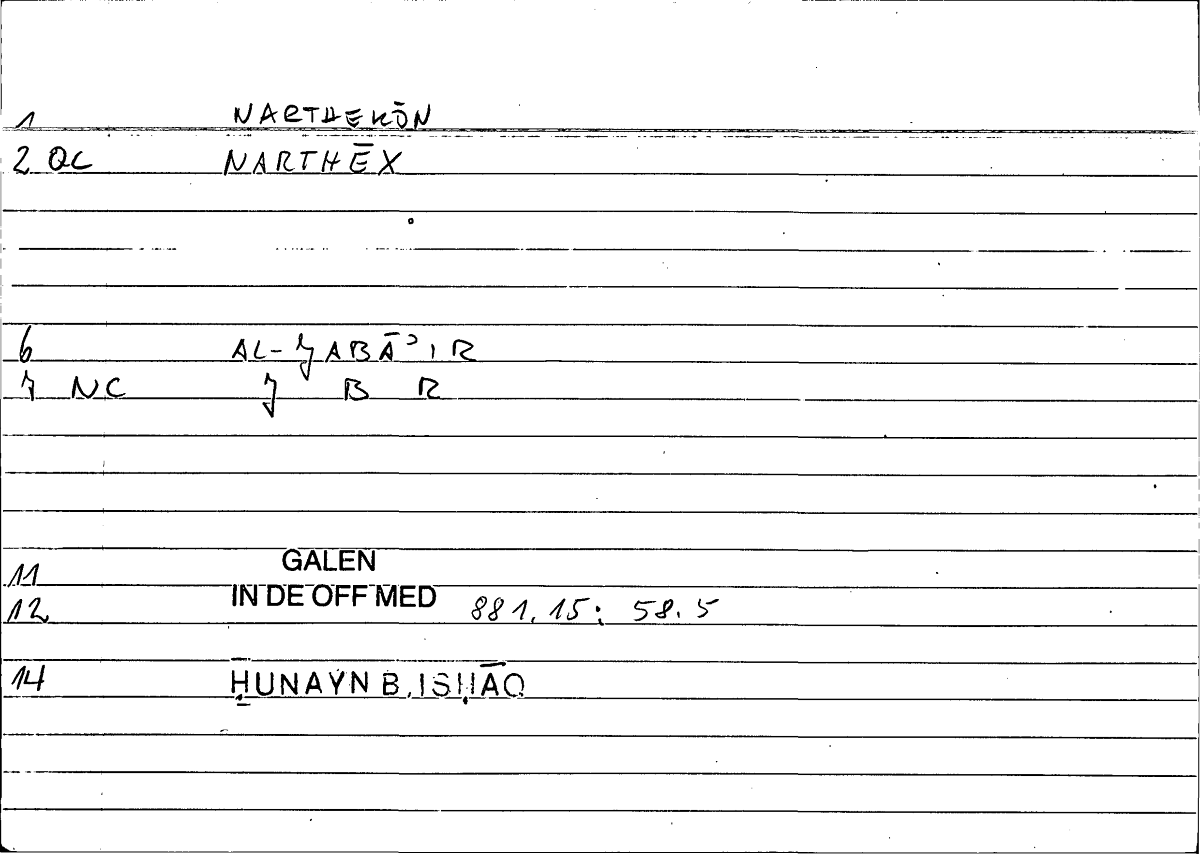 1 NARTHEKŌN
2 QC NARTHĒX
6 AL-JABĀʾIR
7 NC J B R
11 GALEN
12 IN DE OFF MED 881.15: 58.5
14 ḤUNAYN B. ISḤĀQ